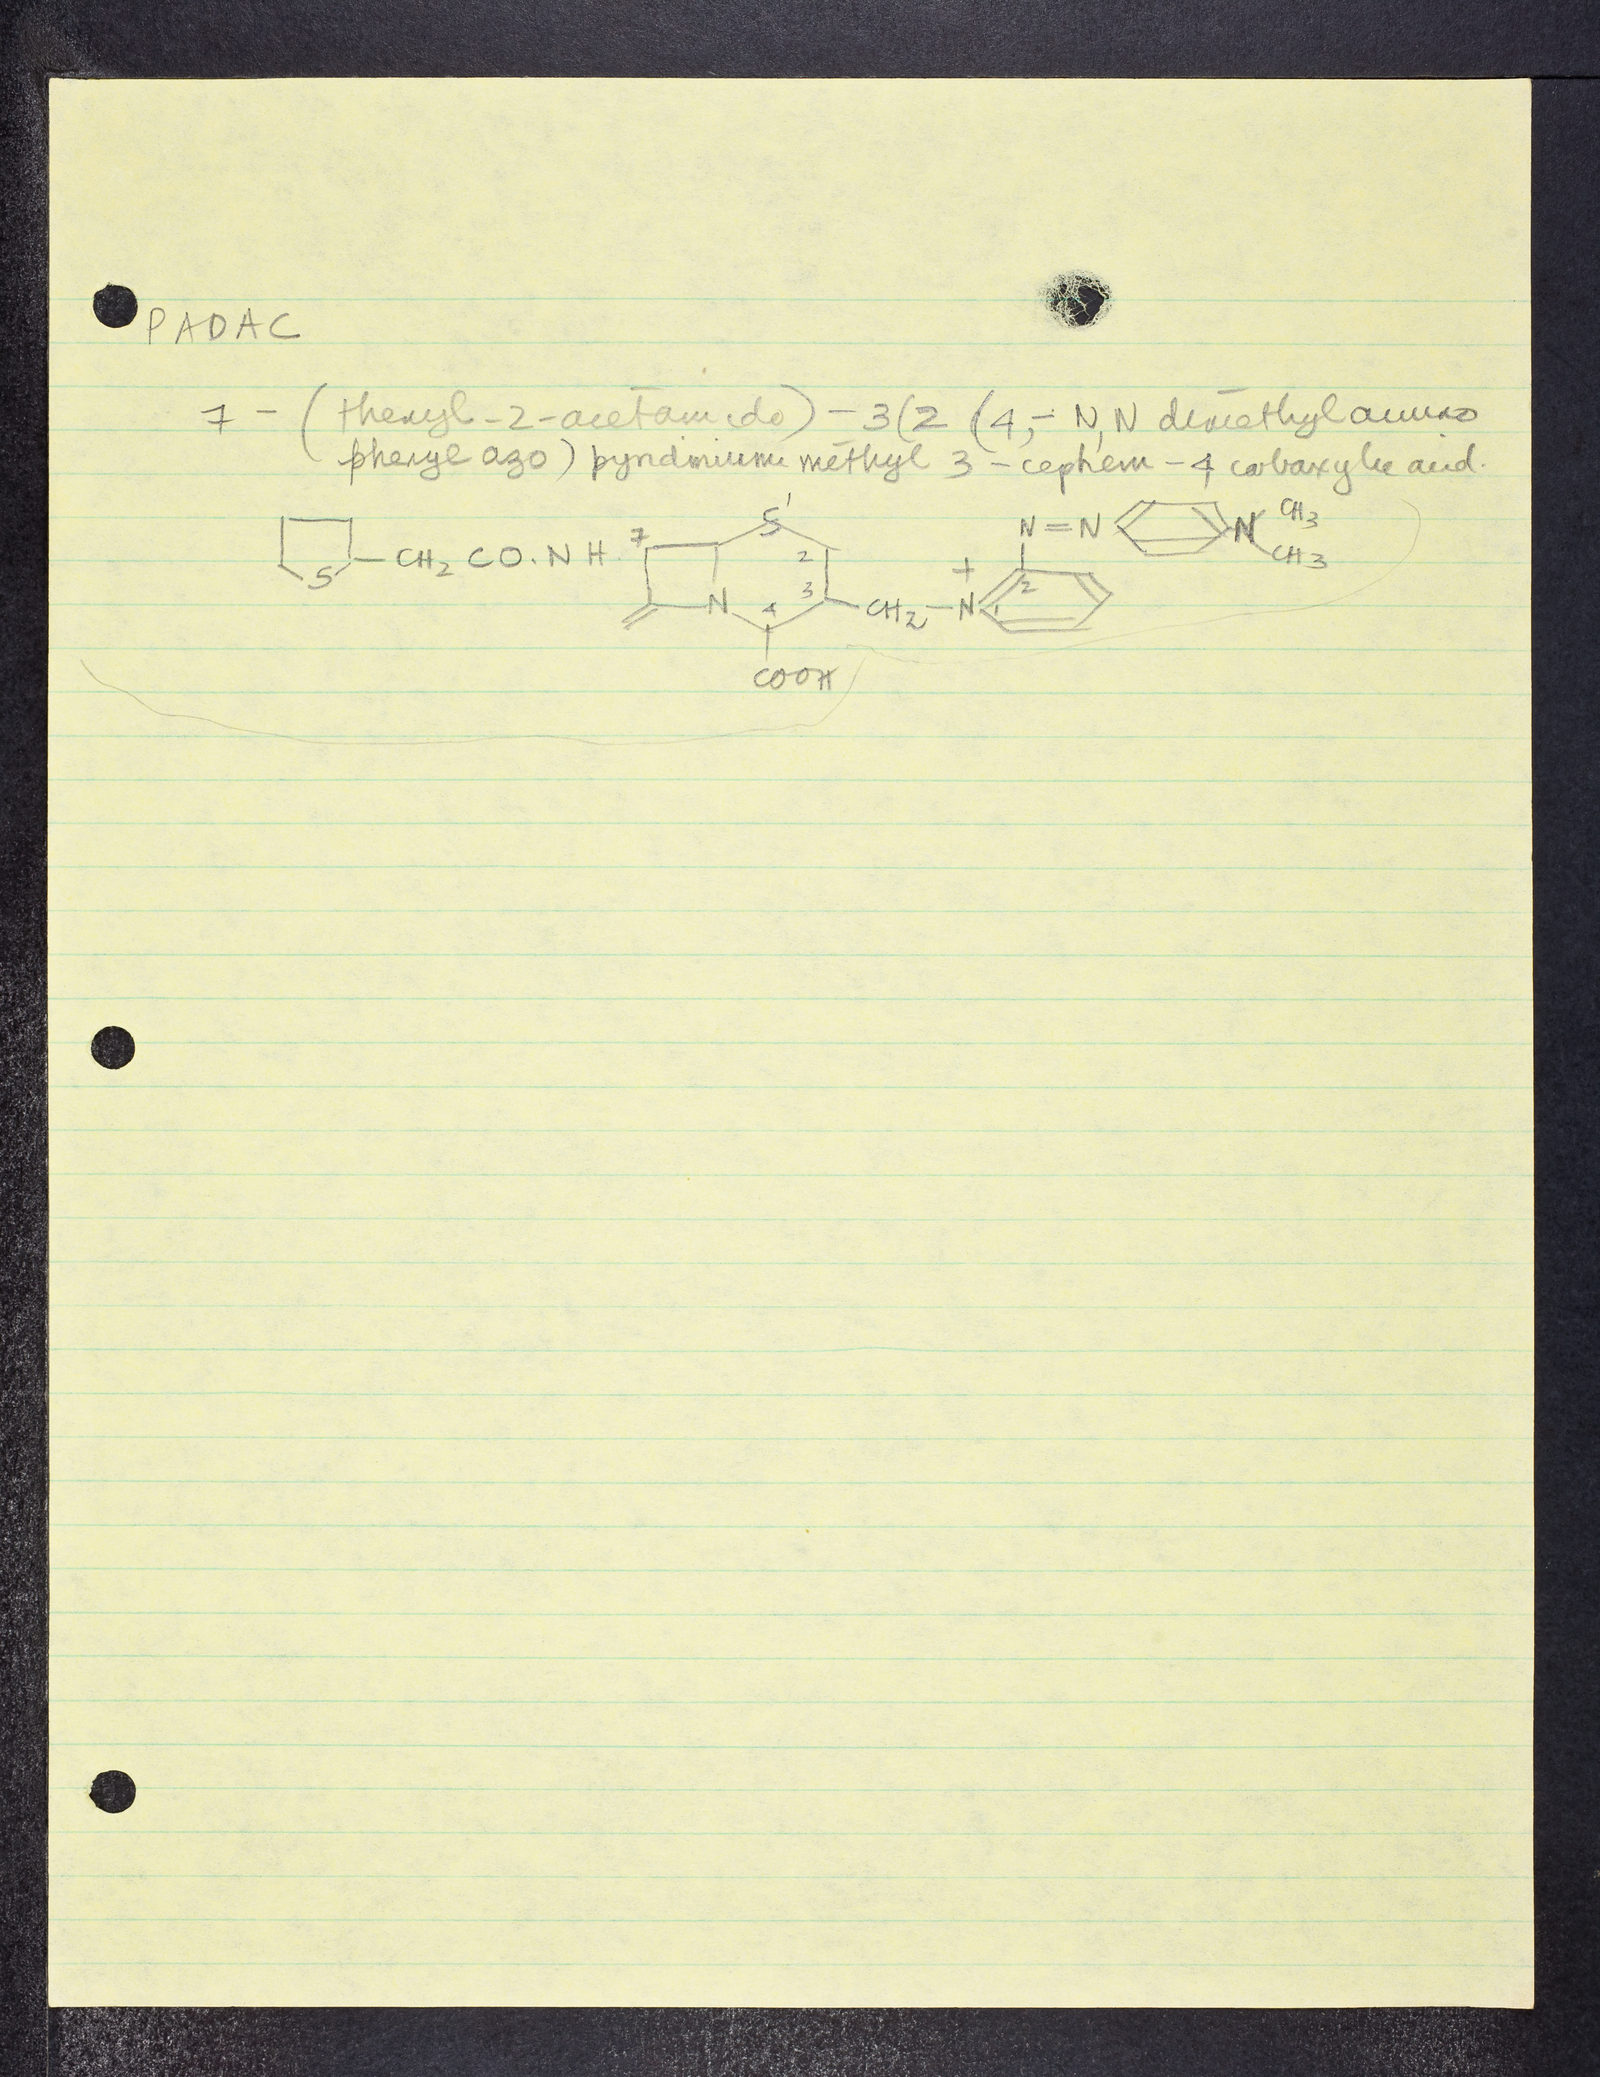 PADAC
7 - (thenyl-2-acetamido) - 3(2 (4,- N,N dimethylamino
phenyl azo) pyridinium methyl 3 - cephem - 4 carboxylic acid.
S - CH2 CO.NH 7 S 1 2 3 4 N COOH CH2 - N + 1 2 N=N N CH3 CH3